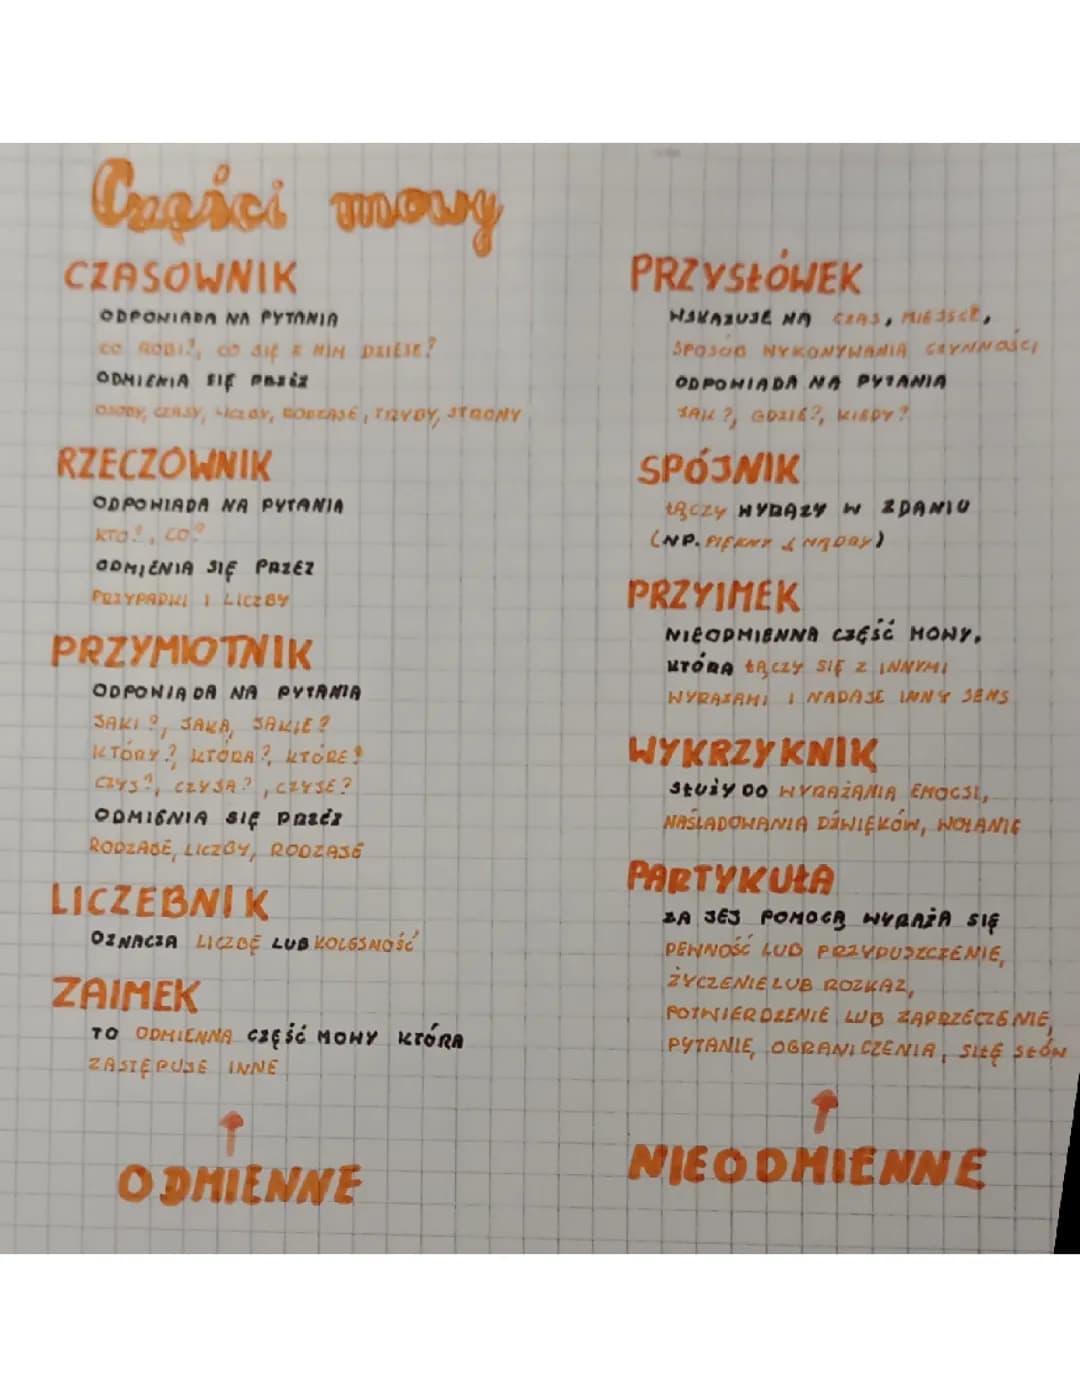 Części mowy
CZASOWNIK
ODPOWIADA NA PYTANIA
CO ROBI?, CO SIĘ Z NIM DZIEJE?
ODMIENIA SIĘ PRZEZ
OSOBY, CZASY, LICZBY, RODZAJE, TRYBY, STRONY
RZECZOWNIK
ODPOWIADA NA PYTANIA
KTO?, CO?
ODMIENIA SIĘ PRZEZ
PRZYPADKI I LICZBY
PRZYMIOTNIK
ODPOWIADA NA PYTANIA
JAKI?, JAKA, JAKIE?
KTÓRY?, KTÓRA?, KTÓRE?
CZYJ?, CZYJA?, CZYJE?
ODMIENIA SIĘ PRZEZ
RODZAJE, LICZBY, RODZAJE
LICZEBNIK
OZNACZA LICZBĘ LUB KOLEJNOŚĆ
ZAIMEK
TO ODMIENNA CZĘŚĆ MOWY KTÓRA
ZASTĘPUJE INNE
↑
ODMIENNE
PRZYSŁÓWEK
WSKAZUJE NA CZAS, MIEJSCE,
SPOSÓB WYKONYWANIA CZYNNOŚCI
ODPOWIADA NA PYTANIA
JAK?, GDZIE?, KIEDY?
SPÓJNIK
ŁĄCZY WYRAZY W ZDANIU
(NP. PIĘKNY I MĄDRY)
PRZYIMEK
NIEODMIENNA CZĘŚĆ MOWY,
KTÓRA ŁĄCZY SIĘ Z INNYMI
WYRAZAMI I NADAJE INNY SENS
WYKRZYKNIK
SŁUŻY DO WYRAŻANIA EMOCJI,
NAŚLADOWANIA DŹWIĘKÓW, WOŁANIE
PARTYKUŁA
ZA JEJ POMOCĄ WYRAŻA SIĘ
PEWNOŚĆ LUB PRZYPUSZCZENIE,
ŻYCZENIE LUB ROZKAZ,
POTWIERDZENIE LUB ZAPRZECZENIE,
PYTANIE, OGRANICZENIA, SIŁĘ SŁÓW
↑
NIEODMIENNE